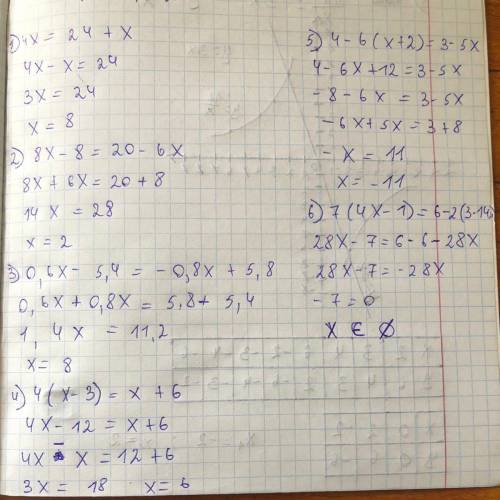 1) 4x = 24 + x
4x - x = 24
3x = 24
x = 8
2) 8x - 8 = 20 - 6x
8x + 6x = 20 + 8
14x = 28
x = 2
3) 0,6x - 5,4 = -0,8x + 5,8
0,6x + 0,8x = 5,8 + 5,4
1,4x = 11,2
x = 8
4) 4(x - 3) = x + 6
4x - 12 = x + 6
4x - x = 12 + 6
3x = 18 x = 6
5) 4 - 6(x + 2) = 3 - 5x
4 - 6x + 12 = 3 - 5x
-8 - 6x = 3 - 5x
-6x + 5x = 3 + 8
-x = 11
x = -11
6) 7(4x - 1) = 6 - 2(3 - 14
28x - 7 = 6 - 6 - 28x
28x - 7 = -28x
-7 = 0
x ∈ ∅